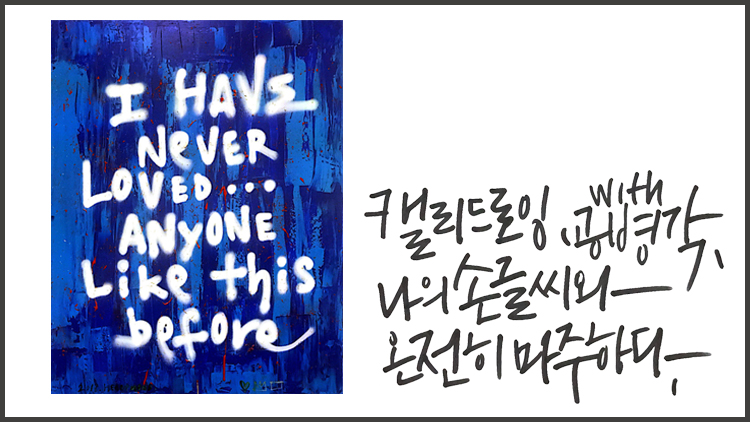 I HAVE
NEVER
LOVED...
ANYONE
Like this
before
캘리드로잉 with 공병각,
나의 손글씨와
온전히 마주하다.